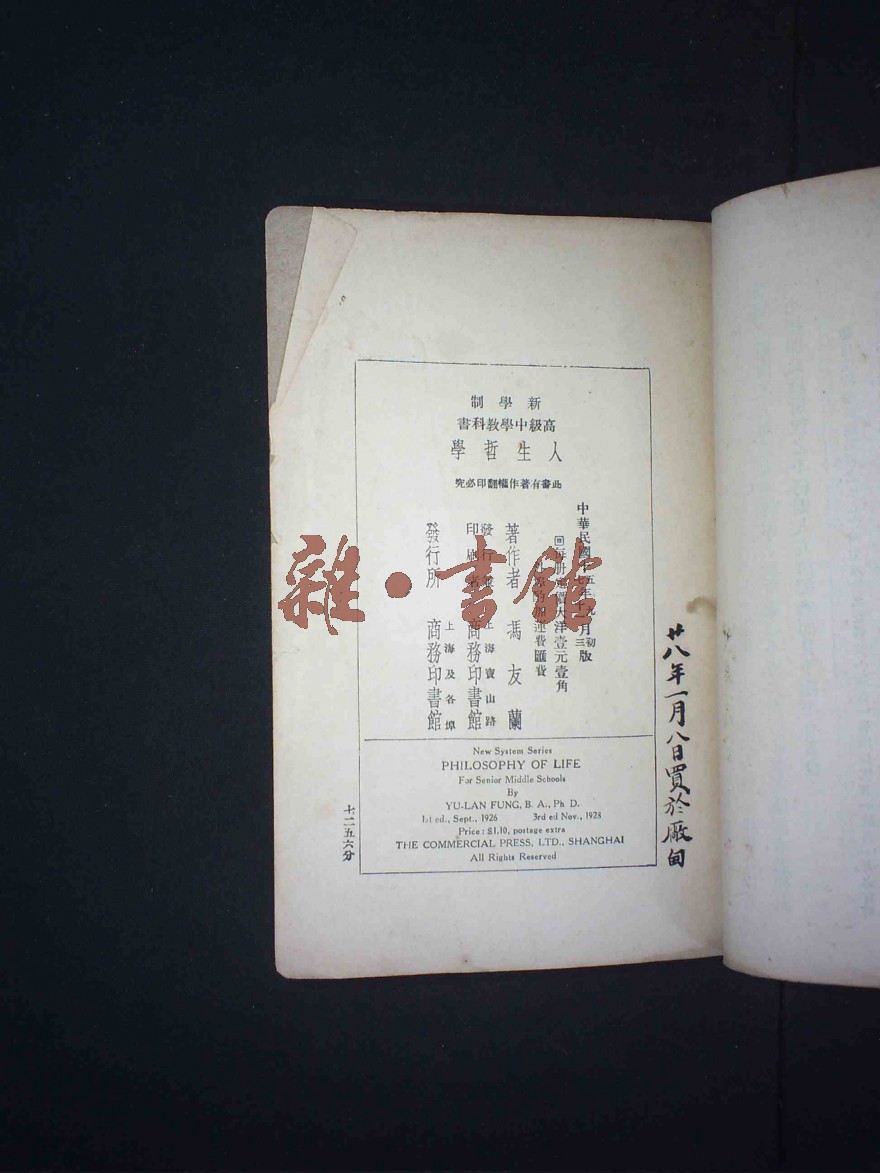 新學制
高級中學教科書
人生哲學
此書有著作權翻印必究
中華民國十五年九月初版
十七年十一月三版
每冊定價大洋壹元壹角
外埠酌加運費匯費
著作者 馮友蘭
發行兼印刷者 上海寶山路 商務印書館
發行所 上海及各埠 商務印書館
New System Series
PHILOSOPHY OF LIFE
For Senior Middle Schools
By
YU-LAN FUNG, B. A., Ph D.
1st ed., Sept., 1926 3rd ed Nov., 1928
Price : $1.10, postage extra
THE COMMERCIAL PRESS, LTD., SHANGHAI
All Rights Reserved
廿八年一月八日買於廠甸
七二五六分
雜·書館